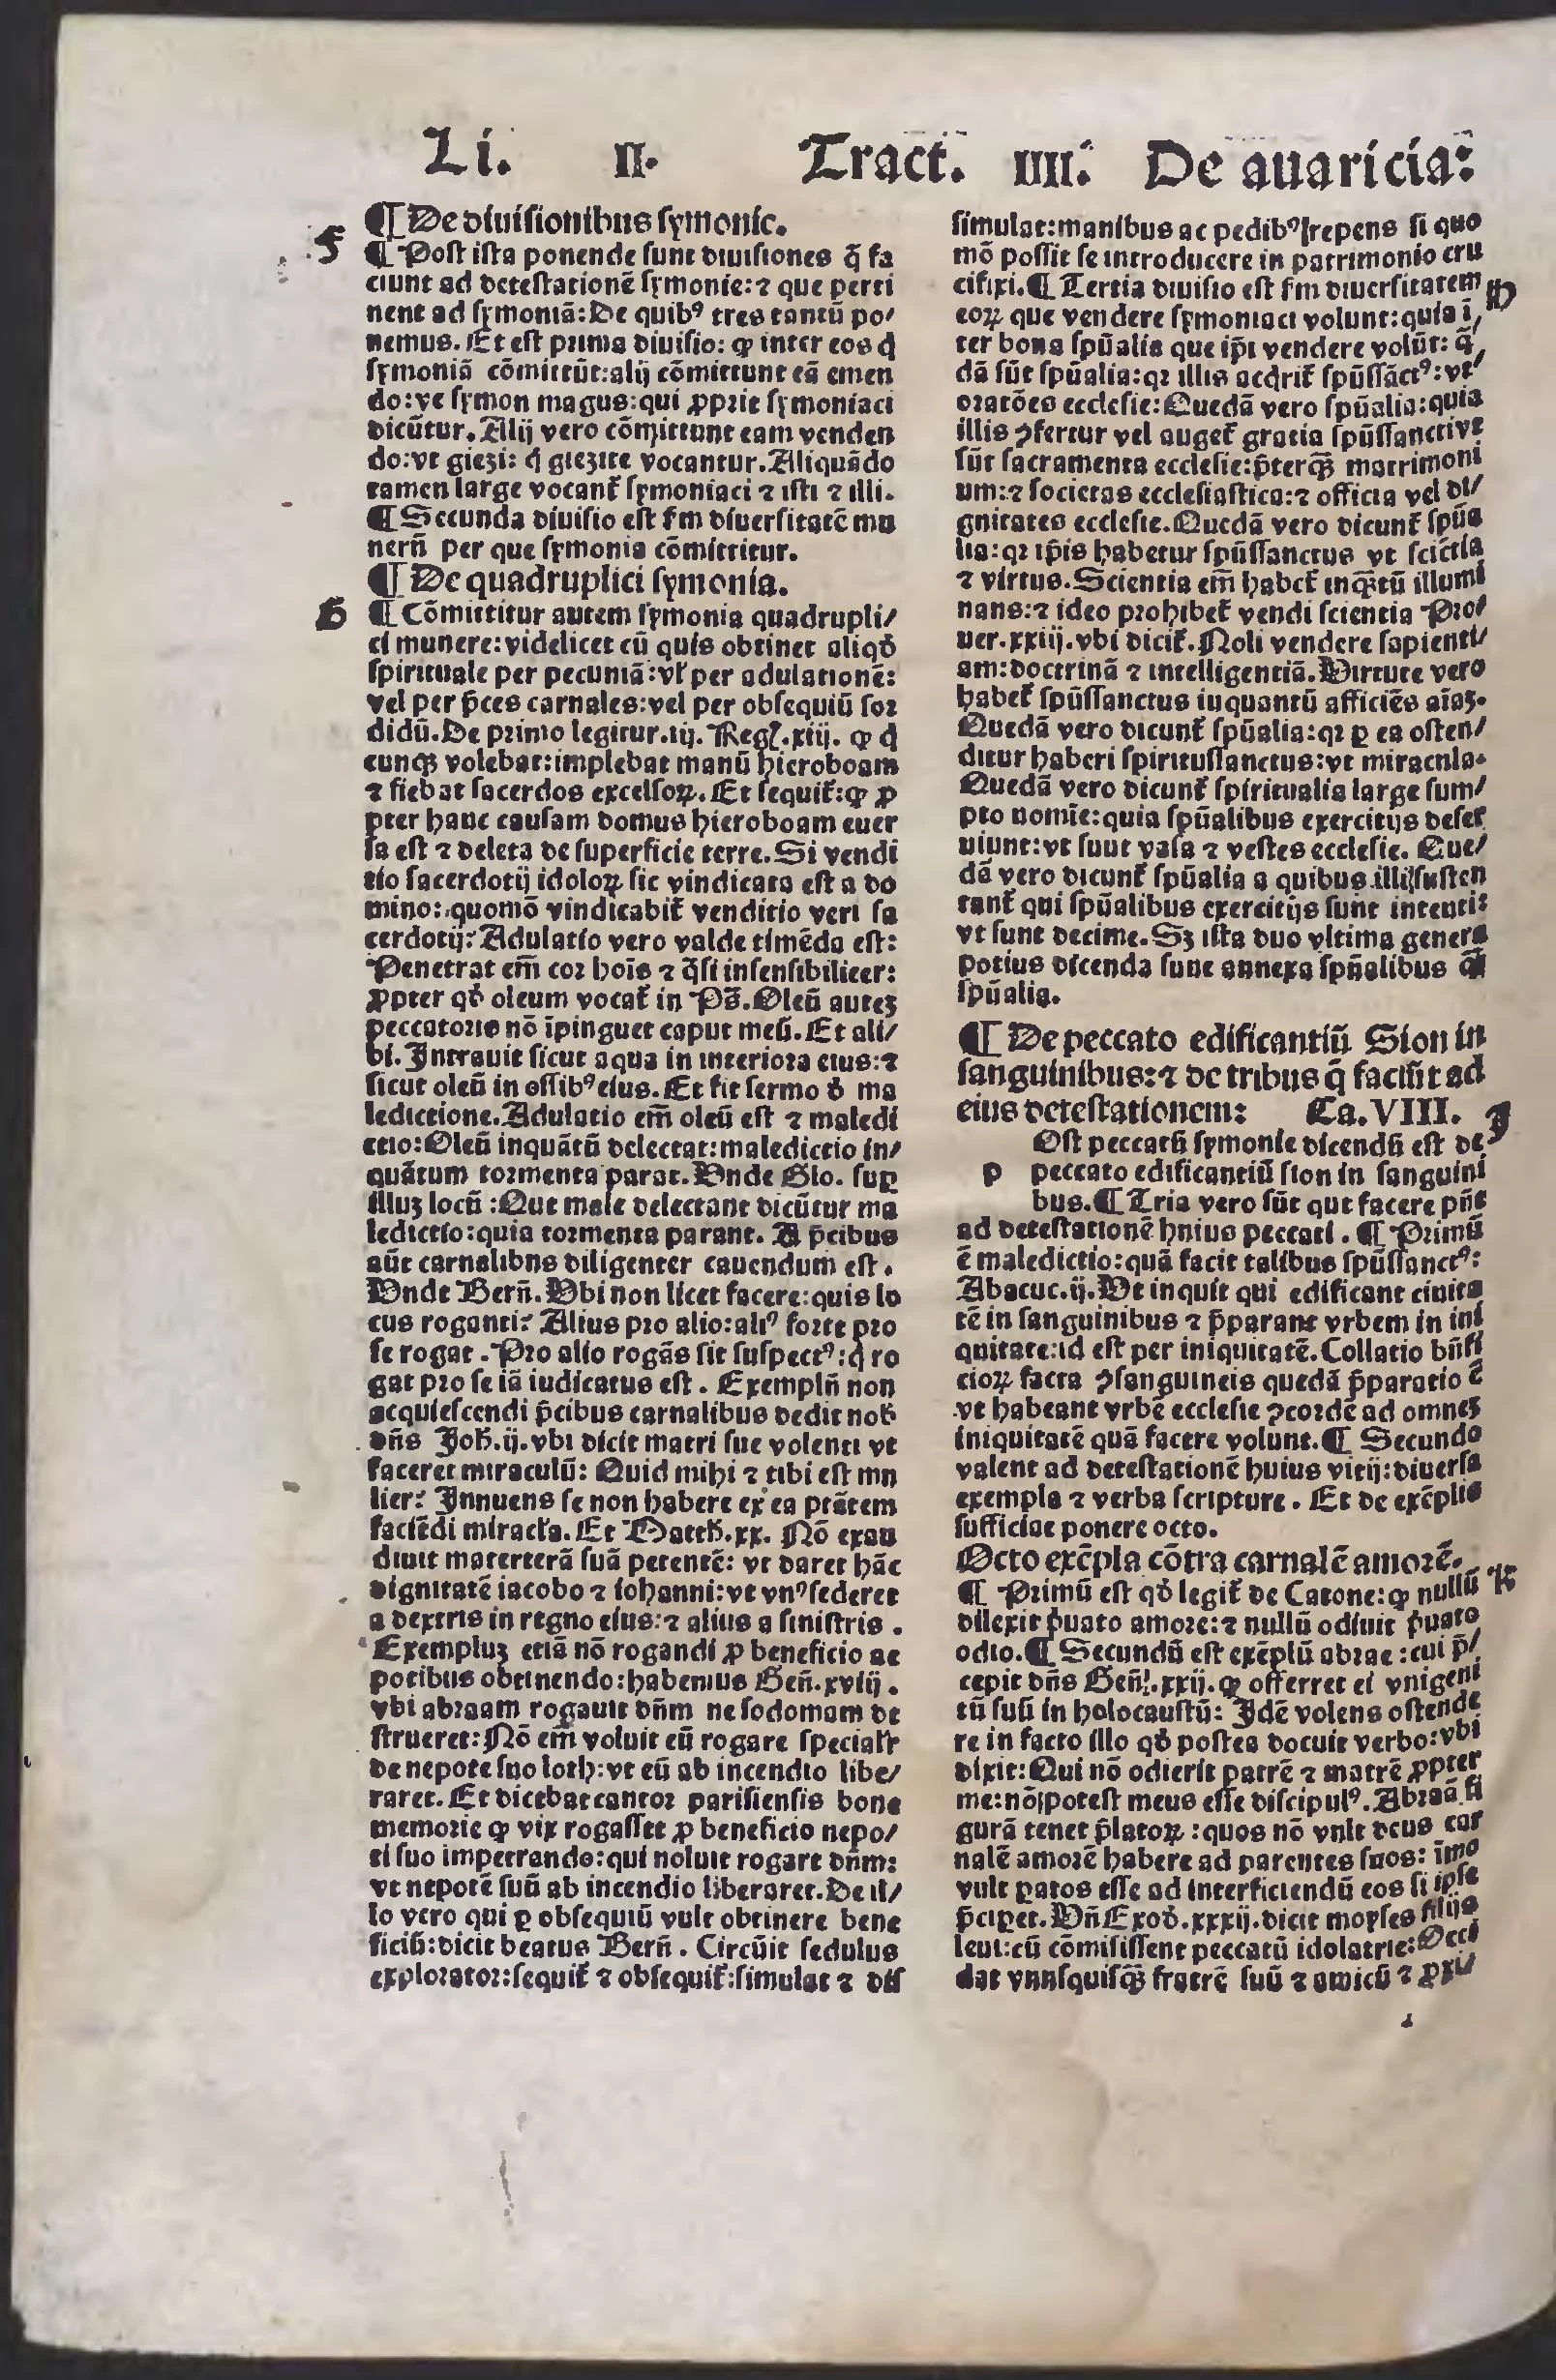 Li. II. Tract. IIII. De auaricia:
¶ De diuisionibus symonie.
F
¶ Post ista ponende sunt diuisiones q̄ fa
ciunt ad detestationē symonie: ⁊ que perti
nent ad symoniā: De quibꝰ tres tantū po/
nemus. Et est prima diuisio: ꝙ inter eos q̇
symoniā cōmittūt: alij cōmittunt eā emen
do: vt symon magus: qui ꝓprie symoniaci
dicūtur. Alij vero cōmittunt eam venden
do: vt giezi: q̇ giezite vocantur. Aliquādo
tamen large vocant᷑ symoniaci ⁊ isti ⁊ illi.
¶ Secunda diuisio est ẜm diuersitatē mu
nerū per que symonia cōmittitur.
¶ De quadruplici symonia.
G
¶ Cōmittitur autem symonia quadrupli/
ci munere: videlicet cū quis obtinet aliqđ
spirituale per pecuniā: vl̓ per adulationē:
vel per p̄ces carnales: vel per obsequiū sor
didū. De primo legitur. iij. Regꝭ. xiij. ꝙ q̇
cunqꝫ volebat: implebat manū hieroboam
⁊ fiebat sacerdos excelsoꝝ. Et sequit᷑: ꝙ ꝓ
pter hanc causam domus hieroboam euer
sa est ⁊ deleta de superficie terre. Si vendi
tio sacerdotij idoloꝝ sic vindicata est a do
mino: quomō vindicabit᷑ venditio veri sa
cerdotij? Adulatio vero valde timēda est:
Penetrat em̄ cor hoīs ⁊ q̄si insensibiliter:
ꝓpter qđ oleum vocat᷑ in Pſ̄. Oleū autez
peccatoris nō īpinguet caput meū. Et ali/
bi. Intrauit sicut aqua in interiora eius: ⁊
sicut oleū in ossibꝰ eius. Et fit sermo đ ma
ledictione. Adulatio em̄ oleū est ⁊ maledi
ctio: Oleū inquātū delectat: maledictio in/
quātum tormenta parat. Vnde Glo. suꝑ
illuz locū: Que male delectant dicūtur ma
ledictio: quia tormenta parant. A p̄cibus
aūt carnalibus diligenter cauendum est.
Vnde Berñ. Vbi non licet facere: quis lo
cus roganti? Alius pro alio: aliꝰ forte pro
se rogat. Pro alio rogās sit suspectꝰ: q̇ ro
gat pro se iā iudicatus est. Exemplū non
acquiescendi p̄cibus carnalibus dedit nob̄
dn̄s Joh̄. ij. vbi dicit matri sue volenti vt
faceret miraculū: Quid mihi ⁊ tibi est mu
lier? Innuens se non habere ex ea pt̄atem
faciēdi miracl̓a. Et Matth̄. xx. Nō exau
diuit materterā suā petentē: vt daret hāc
dignitatē iacobo ⁊ iohanni: vt vnꝰ sederet
a dextris in regno eius: ⁊ alius a sinistris.
Exempluz etiā nō rogandi ꝓ beneficio ne
potibus obtinendo: habemus Geñ. xviij.
vbi abraam rogauit dn̄m ne sodomam de
strueret: Nō em̄ voluit eū rogare specialr̓
de nepote suo loth: vt eū ab incendio libe/
raret. Et dicebat cantor parisiensis bone
memorie ꝙ vix rogasset ꝓ beneficio nepo/
ti suo impetrando: qui noluit rogare dn̄m:
vt nepotē suū ab incendio liberaret. De il/
lo vero qui ꝑ obsequiū vult obtinere bene
ficiū: dicit beatus Berñ. Circūit sedulus
explorator: sequit᷑ ⁊ obsequit᷑: simulat ⁊ dis
simulat: manibus ac pedibꝰ repens si quo
mō possit se introducere in patrimonio cru
cifixi. ¶ Tertia diuisio est ẜm diuersitatem
H
eoꝝ que vendere symoniaci volunt: quia ī/
ter bona spūalia que ip̄i vendere volūt: q̄/
dā sūt spūalia: qꝛ illis acq̇rit᷑ spūssāctꝰ: vt
oratōes ecclesie: Quedā vero spūalia: quia
illis ꝯfertur vel auget᷑ gratia spūssancti vt
sūt sacramenta ecclesie: p̄terqꝫ matrimoni
um: ⁊ societas ecclesiastica: ⁊ officia vel di/
gnitates ecclesie. Quedā vero dicunt᷑ spūa
lia: qꝛ ip̄is habetur spūssanctus vt sciētia
⁊ virtus. Scientia em̄ habet᷑ inq̄stū illumi
nans: ⁊ ideo prohibet᷑ vendi scientia Pro/
uer. xxiij. vbi dicit᷑. Noli vendere sapienti/
am: doctrinā ⁊ intelligentiā. Virtute vero
habet᷑ spūssanctus inquantū afficiēs aīaꝫ.
Quedā vero dicunt᷑ spūalia: qꝛ ꝑ ea osten/
ditur haberi spiritussanctus: vt miracula.
Quedā vero dicunt᷑ spiritualia large sum/
pto nomīe: quia spūalibus exercitijs deser
uiunt: vt sunt vasa ⁊ vestes ecclesie. Que/
dā vero dicunt᷑ spūalia a quibus illi susten
tant᷑ qui spūalibus exercitijs sunt intenti:
vt sunt decime. Sꝫ ista duo vltima genera
potius dicenda sunt annexa spūalibus q̄ꝫ
spūalia.
¶ De peccato edificantiū Sion in
sanguinibus: ⁊ de tribus q̄ faciūt ad
eius detestationem: Ca. VIII.
J
Ost peccatū symonie dicendū est de
p peccato edificantiū sion in sanguini
bus. ¶ Tria vero sūt que facere pn̄t
ad detestationē huius peccati. ¶ Primū
ē maledictio: quā facit talibus spūssanctꝰ:
Abacuc. ij. Ve inquit qui edificant ciuita
tē in sanguinibus ⁊ p̄parant vrbem in ini
quitate: id est per iniquitatē. Collatio bn̄fi
cioꝝ facta ꝯsanguineis quedā p̄paratio ē
vt habeant vrbē ecclesie ꝯcordē ad omneꝫ
iniquitatē quā facere volunt. ¶ Secundo
valent ad detestationē huius vitij: diuersa
exempla ⁊ verba scripture. Et de exēplis
sufficiat ponere octo.
Octo exēpla cōtra carnalē amorē.
K
¶ Primū est qđ legit᷑ de Catone: ꝙ nullū
dilexit p̓uato amore: ⁊ nullū odiuit p̓uato
odio. ¶ Secundū est exēplū abrae: cui p̄/
cepit dn̄s Geñ. xxij. ꝙ offerret ei vnigeni
tū suū in holocaustū: Idē volens ostende
re in facto illo qđ postea docuit verbo: vbi
dixit: Qui nō odierit patrē ⁊ matrē ꝓpter
me: nō potest meus esse discipulꝰ. Abraā fi
gurā tenet p̄latoꝝ: quos nō vult deus car
nalē amorē habere ad parentes suos: īmo
vult ꝑatos esse ad interficiendū eos si ipse
p̄ciꝑet. Vn̄ Exođ. xxxij. dicit moyses filijs
leui: cū cōmisissent peccatū idolatrie: Occi
dat vnusquisqꝫ fratrē suū ⁊ amicū ⁊ ꝓxi/